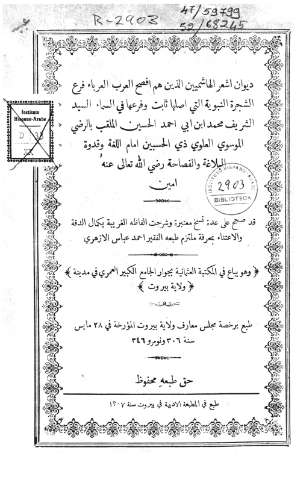 R-2903
4T/53799
52/68245
ديوان اشعر الهاشميين الذين هم افصح العرب العرباء فرع
الشجرة النبوية التي اصلها ثابت وفرعها في السماء السيد
الشريف محمد ابن ابي احمد الحسين الملقب بالرضي
الموسوي العلوي ذي الحسبين امام اللغة وقدوة
البلاغة والفصاحة رضي الله تعالى عنه
امين
Instituto
Hispano-Arabe
2903
BIBLIOTECA
قد صحح على عدة نسخ معتبرة وشرحت الفاظه الغريبة بكمال الدقة
والاعتناء بمعرفة ملتزم طبعه الفقير احمد عباس الازهري
وهو يباع في المكتبة العثمانية بجوار الجامع الكبير العمري في مدينة
ولاية بيروت
طبع برخصة مجلس معارف ولاية بيروت المؤرخة في ٢٨ مايس
سنة ٣٠٦ ونومرو ٣٤٦
حق طبعه محفوظ
طبع في المطبعة الادبية في بيروت سنة ١٣٠٧